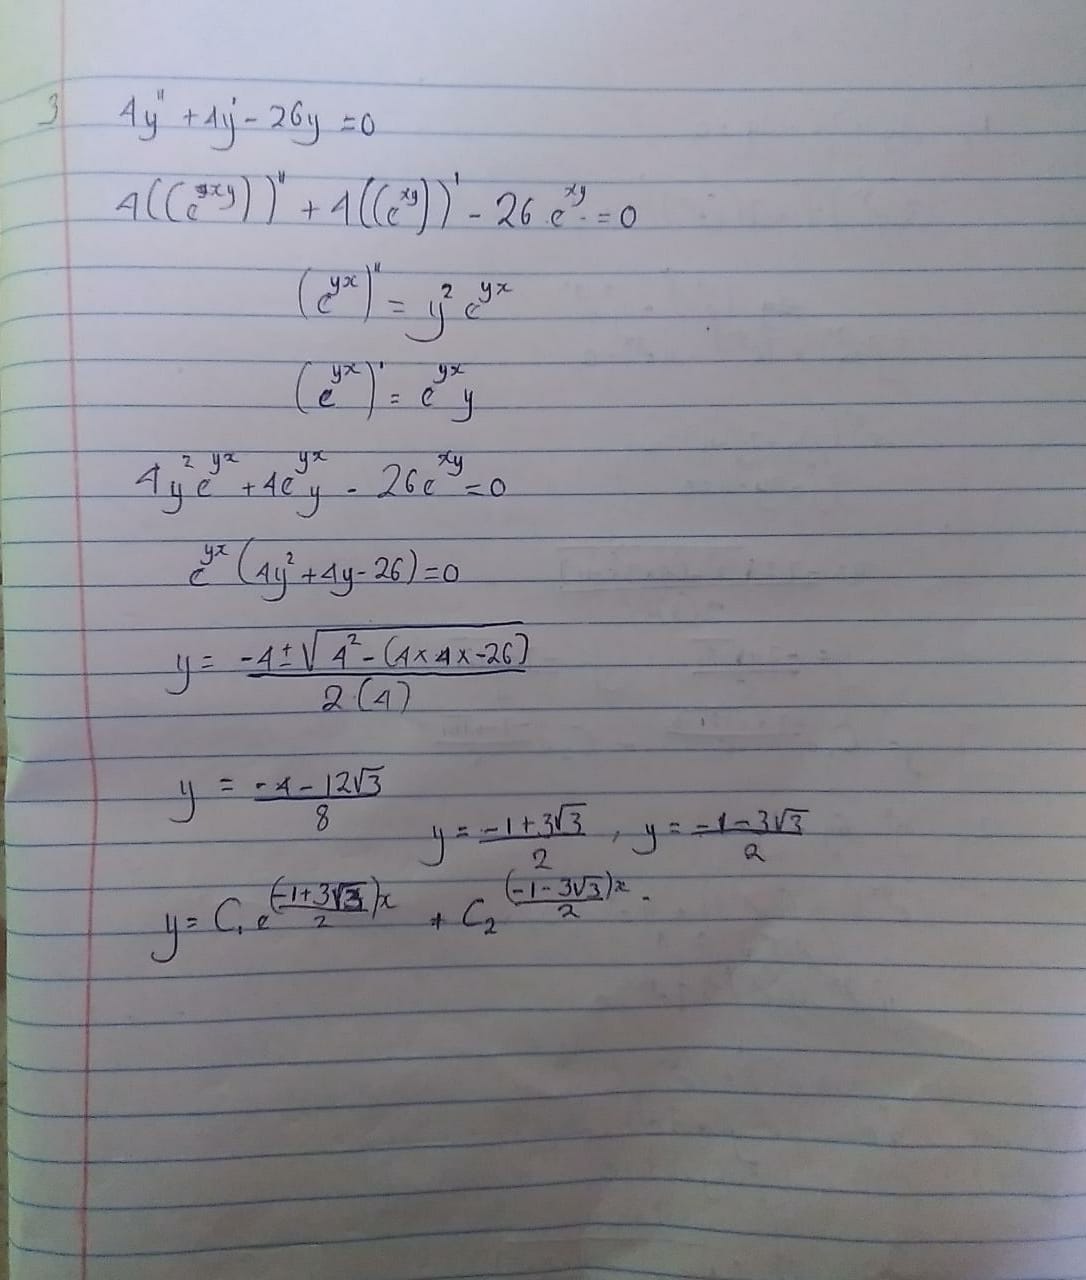 3 4y'' + 4y' - 26y = 0
4((e^{xy}))'' + 4((e^{xy}))' - 26 e^{xy} = 0
(e^{yx})'' = y^2 e^{yx}
(e^{yx})' = e^{yx} y
4y^2 e^{yx} + 4e^{yx} y - 26e^{xy} = 0
e^{yx} (4y^2 + 4y - 26) = 0
y = \frac{-4 ± √{4^2 - (4 × 4 × -26)}}{2·(4)}
y = \frac{-4 - 12√3}{8}
y = \frac{-1 + 3√3}{2} , y = \frac{-1 - 3√3}{2}
y = C_1 e^{(\frac{-1 + 3√3}{2})x} + C_2^{(\frac{-1 - 3√3}{2})x} .